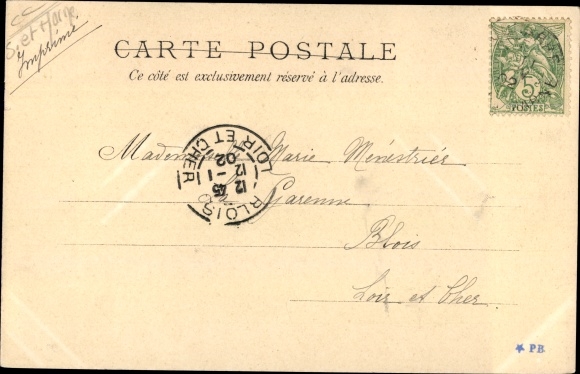 S. et Marne
Imprimé
CARTE POSTALE
Ce côté est exclusivement réservé à l'adresse.
5
POSTES
BLOIS
12
15 - 1
02
LOIR ET CHER
Marie Ménestrier
Garenne
Blois
Loir et Cher
★ PB